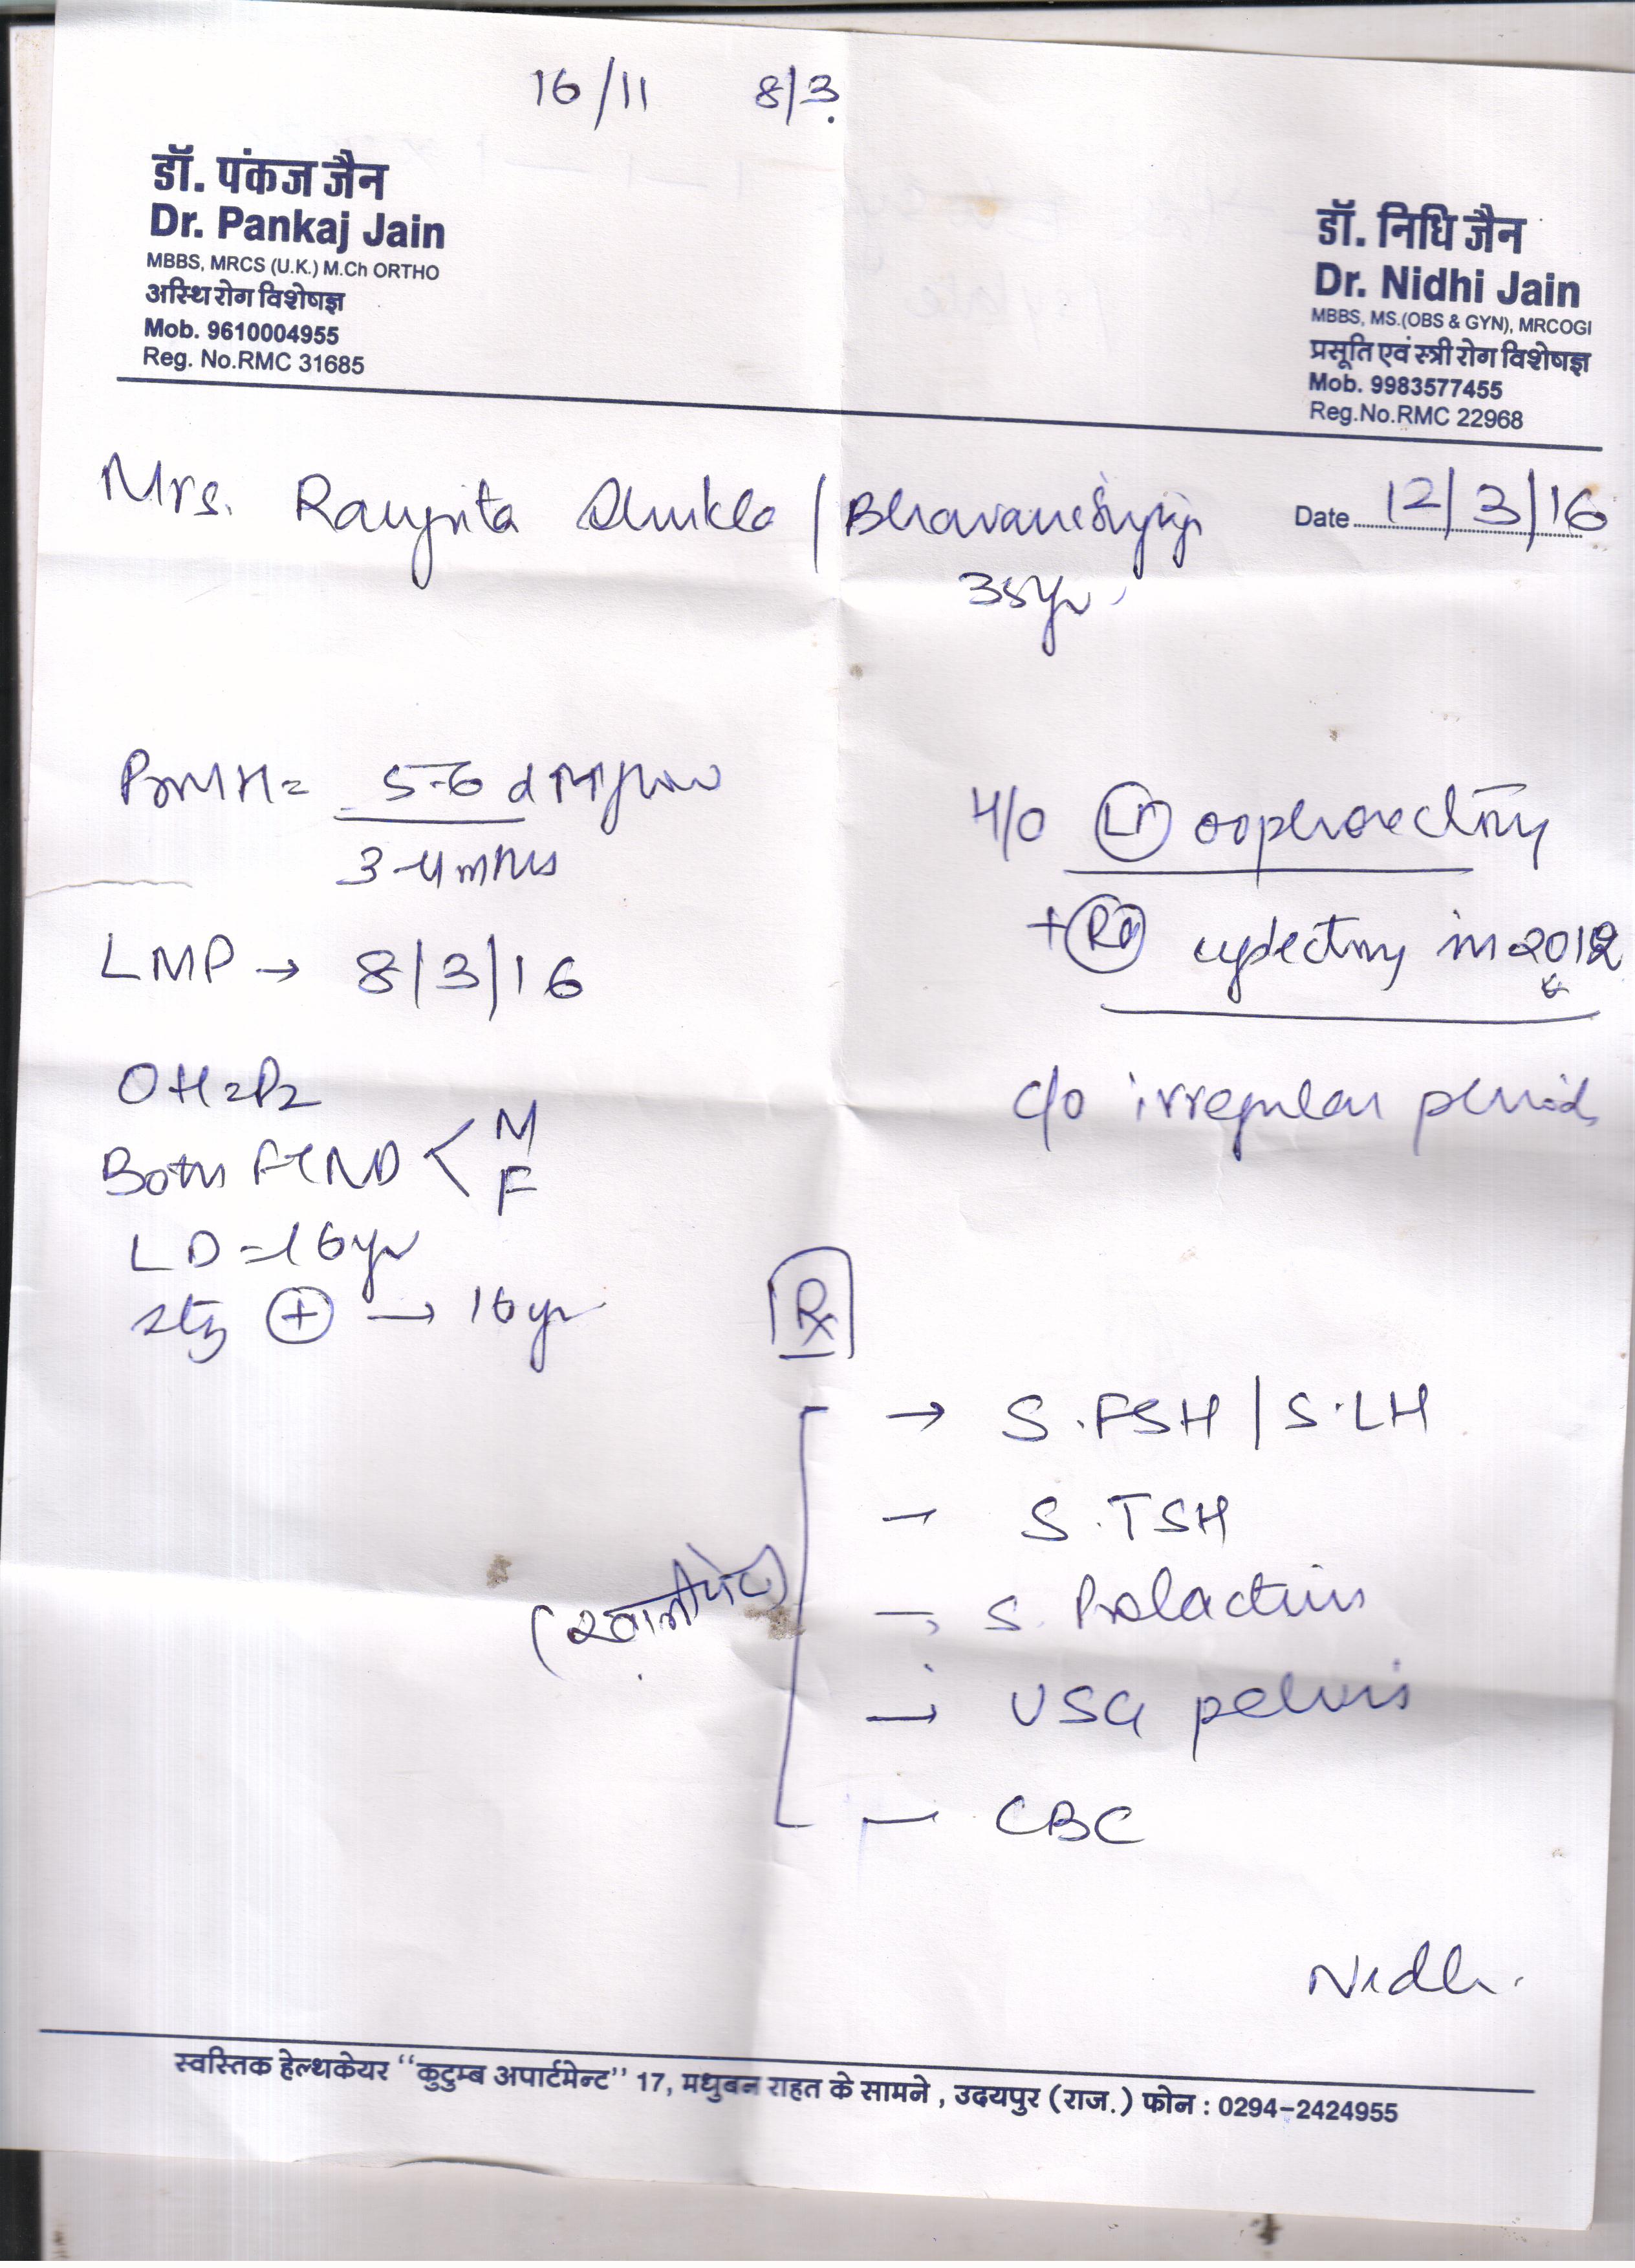 16/11 8/3.
डॉ. पंकज जैन
Dr. Pankaj Jain
MBBS, MRCS (U.K.) M.Ch ORTHO
अस्थि रोग विशेषज्ञ
Mob. 9610004955
Reg. No.RMC 31685
डॉ. निधि जैन
Dr. Nidhi Jain
MBBS, MS.(OBS & GYN), MRCOGI
प्रसूति एवं स्त्री रोग विशेषज्ञ
Mob. 9983577455
Reg.No.RMC 22968
Mrs. Shukla /
Date 12/3/16
35yr.
PMH= 5-6 d
3-4 mths
H/O Lt oophorectomy
+ Rt cystectomy in 2012
LMP → 8/3/16
OH=P2
Both FTND < M
F
C/O irregular periods
LD=16yr
stz + → 16yr
Rx
→ S.FSH / S.LH
- S.TSH
→ S. Prolactin
→ USG pelvis
- CBC
(खाली पेट)
Nidhi.
स्वस्तिक हेल्थकेयर “कुटुम्ब अपार्टमेन्ट” 17, मधुबन राहत के सामने, उदयपुर (राज.) फोन : 0294-2424955